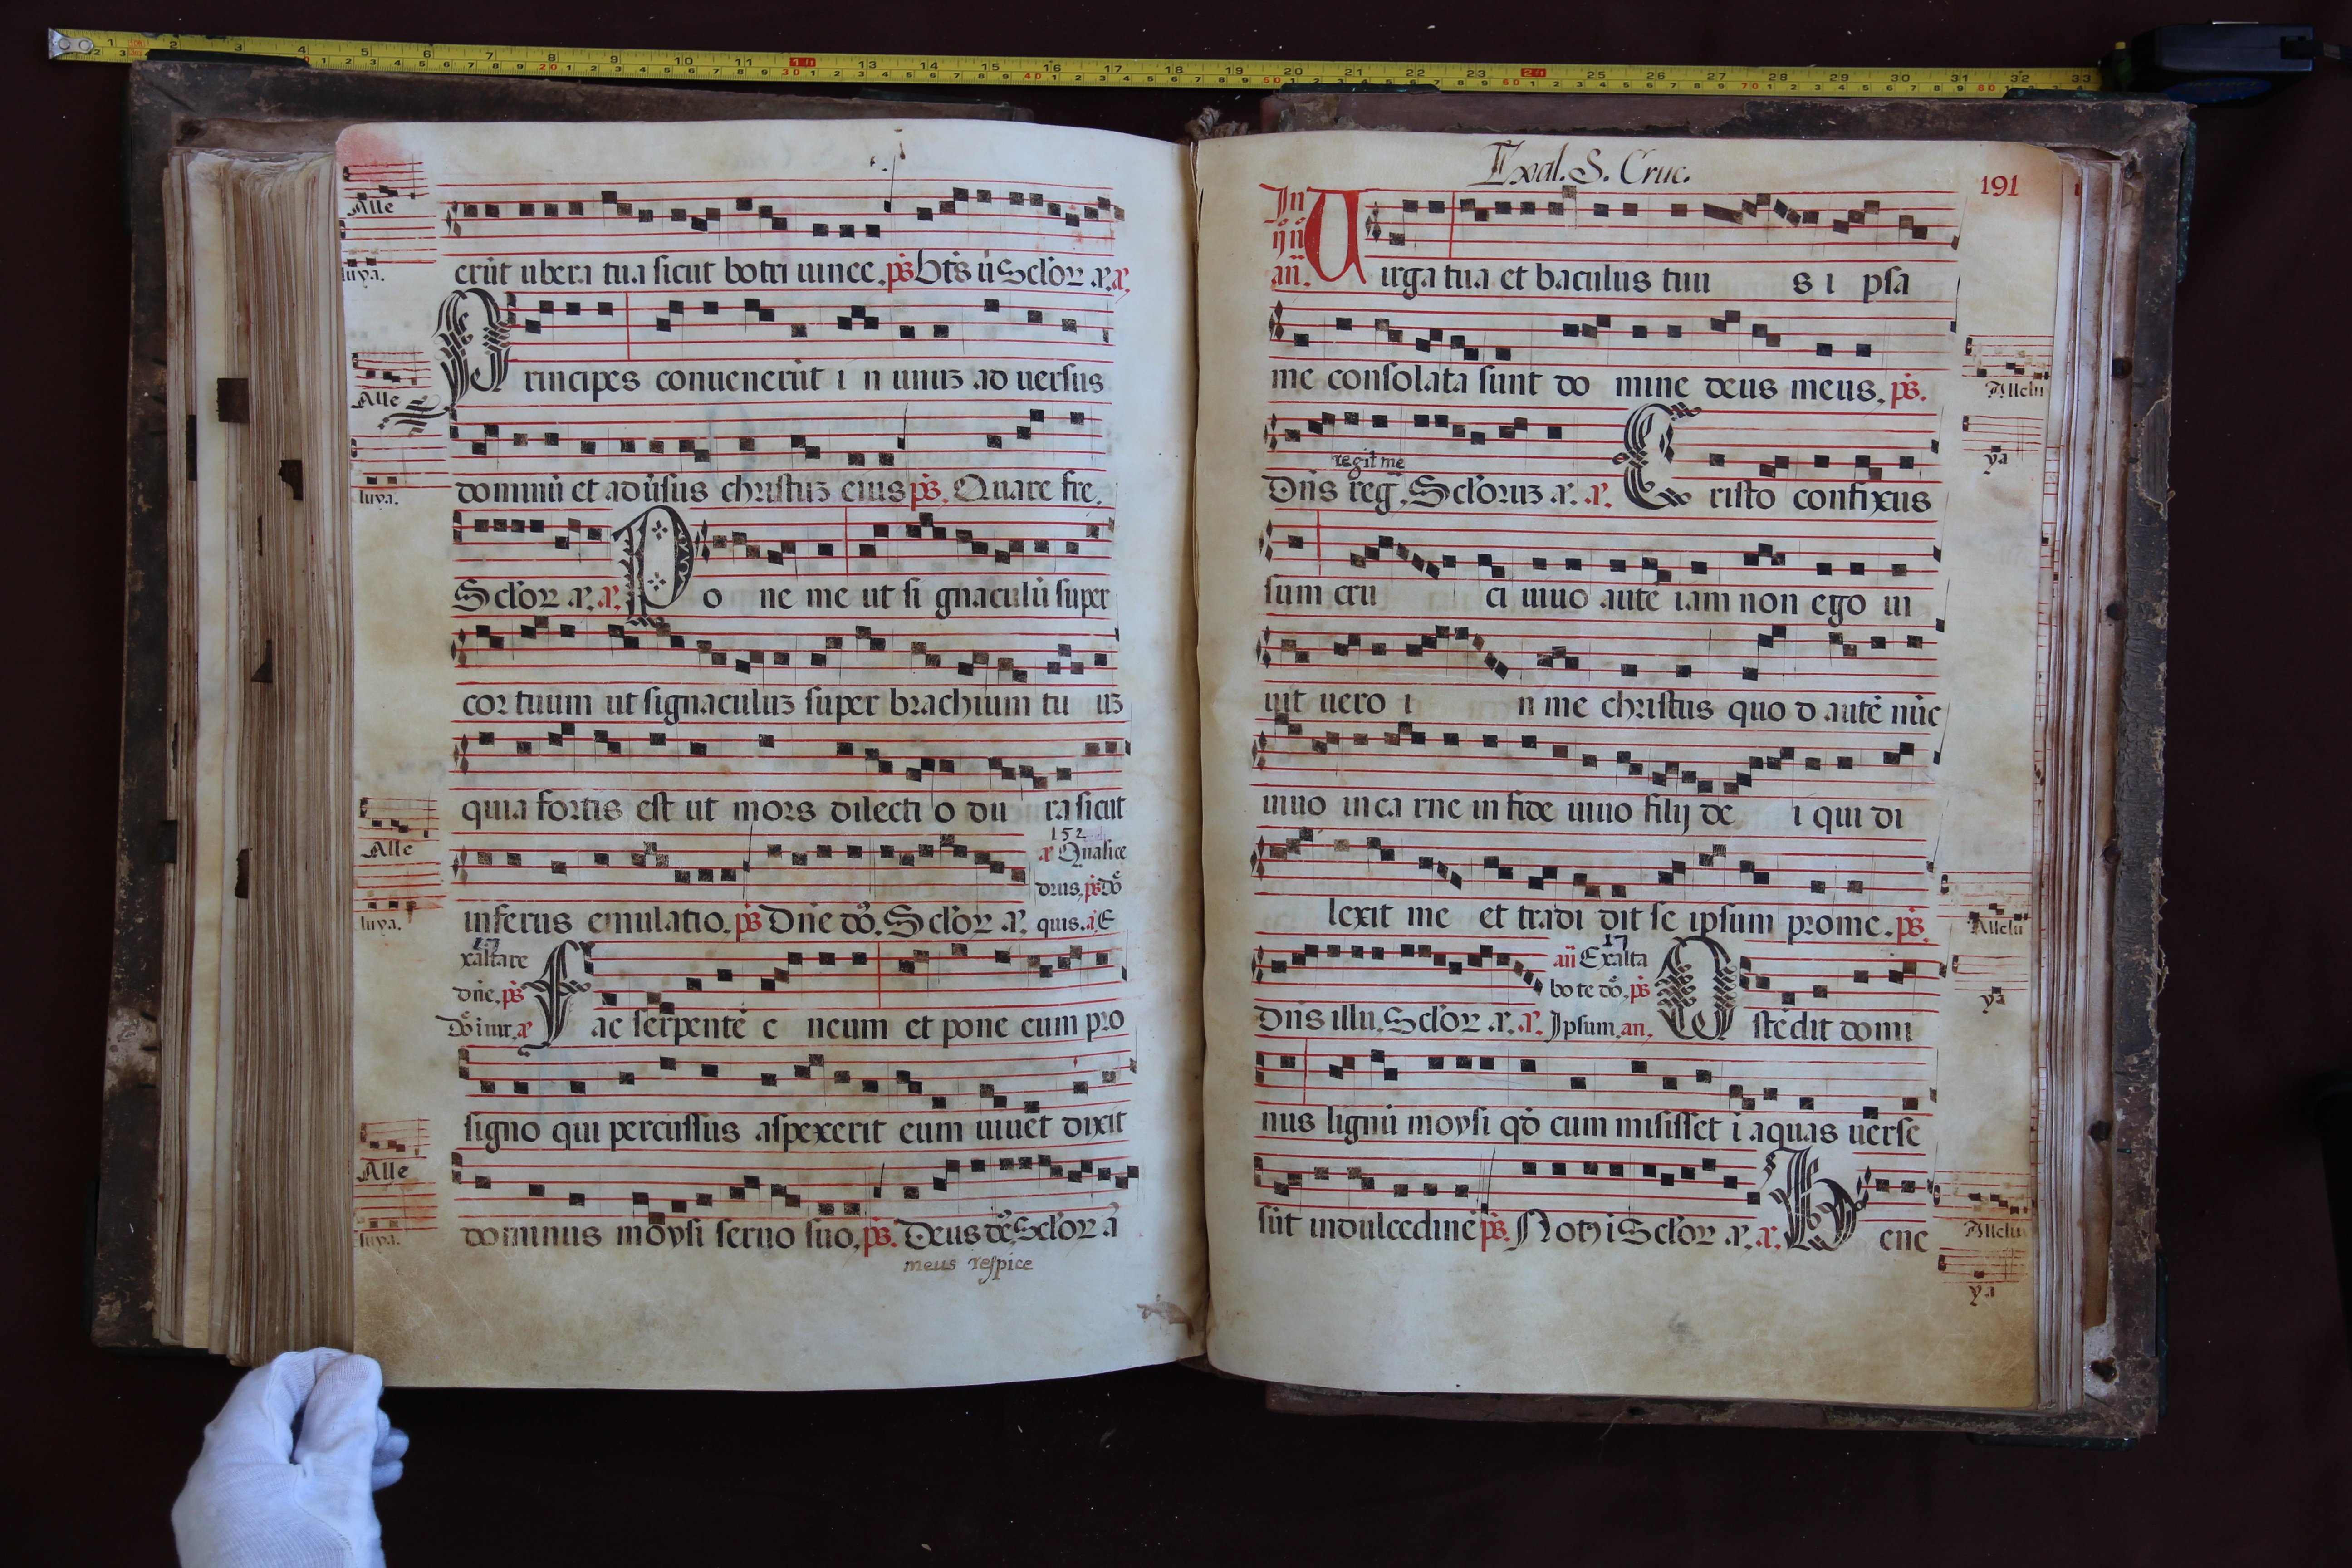 Alle
luya.
erũt ubera tua sicut botri uinee. ps̃ Bt̃s ũ Sclõr. ã. ã.
Principes conuenerũt i n unuz ad uersus
Alle
dominũ et adũsus christuz eius ps̃. Quare fre.
luya.
Sclõr ã. ã. Po ne me ut si gnaculũ super
cor tuum ut signaculuz super brachium tu uz
quia fortis est ut mors dilecti o du ra sicut
152
ã Qualice
Alle
drus. ps̃ dõ
infernus emulatio. ps̃ Dñe dõ. Sclõr ã. quis. ã E
luya.
17
xaltare
dñe. ps̃
dõ iuir. ã Fac serpentẽ e neum et pone eum pro
signo qui percussus aspexerit eum uiuet dixit
Alle
dominus moysi seruo suo. ps̃. Deus dẽ. Sclõr ã
luya.
meus respice
Exal. S. Cruc.
191
In
ij ñ
añ. Uirga tua et baculus tuu s i psa
me consolata sunt do mine deus meus. ps̃.
Allelu
regit me
ya
Dñs reg̃. Sclõruz ã. ã. Cristo confixus
sum cru ci uiuo autẽ iam non ego ui
uit uero i n me christus quo d autẽ nũc
uiuo in ca rne in fide uiuo filij de i qui di
lexit me et tradi dit se ipsum pro me. ps̃.
Allelu
17
añ Exalta
bo te dõ. ps̃
ya
Dñs illu. Sclõr ã. ã. Ipsum. an. Ostẽdit domi
nus lignũ moysi qd̃ cum misisset i aquas uerse
sũt in dulcedinẽ ps̃. Not9 i Sclõr ã. ã. Bene
Allelu
ya